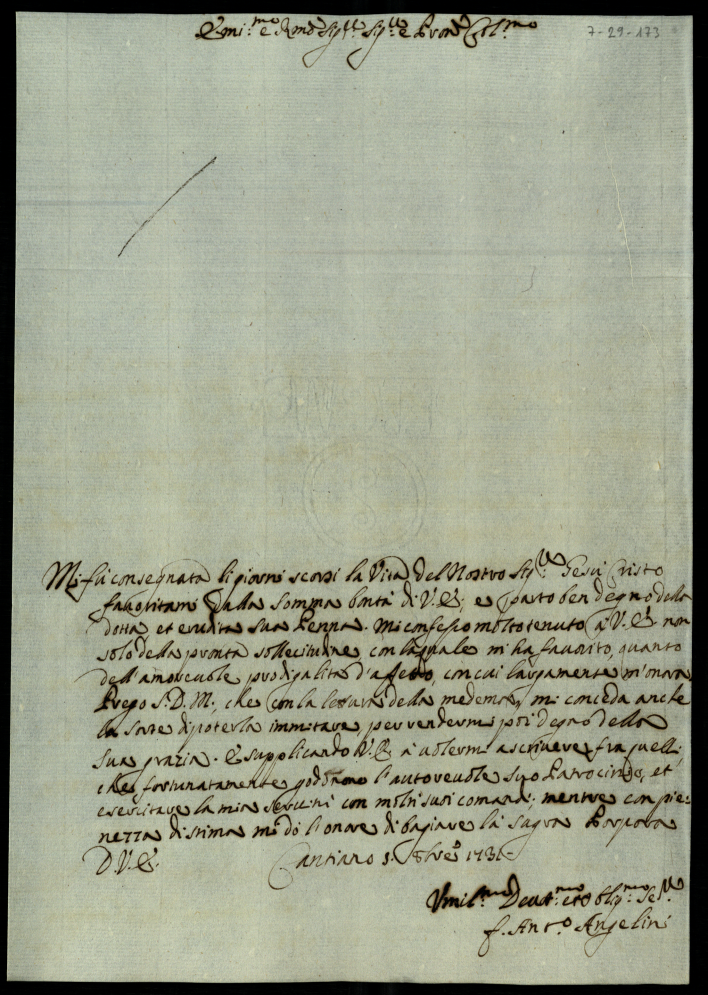 Emi:mo e Rmo Sigre Sigre e Pron Col:mo
7-29-173
Mi fú consegnata li giorni scorsi la Vita del Nostro Sigre Gesù Cristo
favoritami dalla somma bontà di V. E., e parto ben degno della
dotta et erudita sua Penna. Mi confesso molto tenuto à V. E. non
solo della pronta sollecitudine con la quale m'ha favorito, quanto
dell'amorevole prodigalità d'affetto, con cui largamente m'onora
Prego S. D. M., che con la lettura della medema, mi conceda anche
la sorte di poterla immitare, per rendermi poi degno della
sua grazia. E supplicando V. E. à volermi ascrivere frà quelli
che fortunatamente godono l'autorevole suo Patrocinio, et
esercitare la mia servitù con molti suoi comandi; mentre con pie:
nezza di stima mi dò l'onore di bagiare la Sagra Porpora
D. V. E. Cantiano 1731
Umil:mo Devot:mo et Oblig:mo Se:re
f. Ant:o Angelini